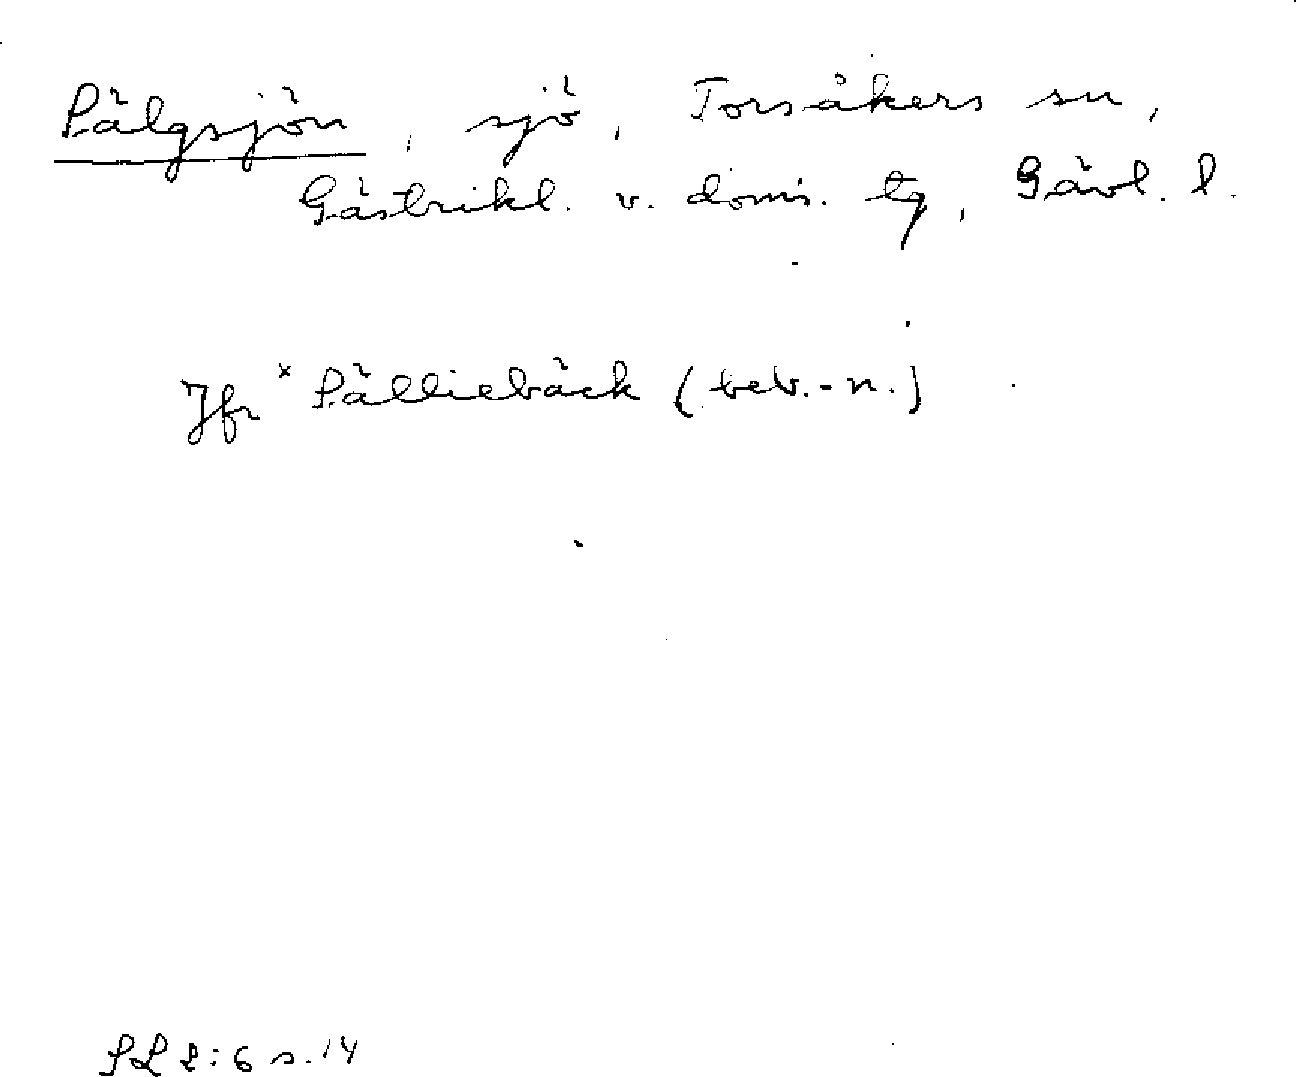 Pälgsjön, sjö, Torsåkers sn,
Gästrikl. v. doms. tg, Gävl. l.
Jfr × Pälliebäck (beb.-n.)
SL 2:6 s. 14